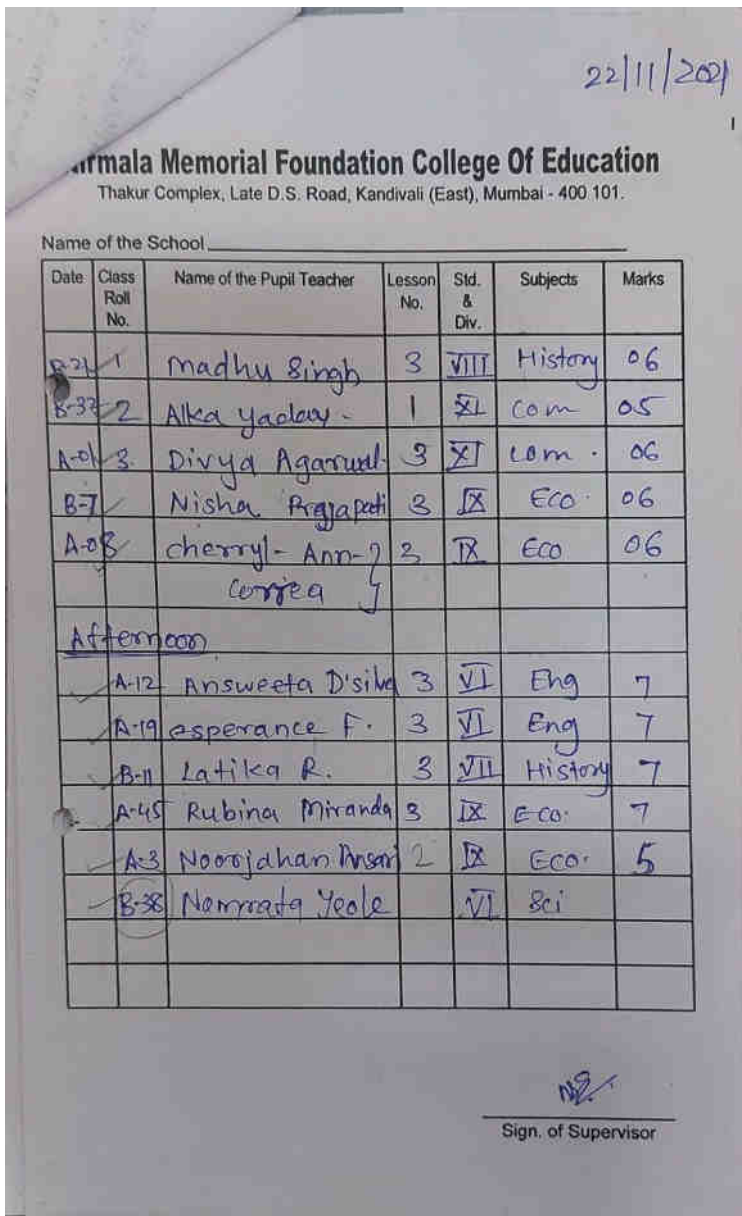 22/11/2021
1
irmala Memorial Foundation College Of Education
Thakur Complex, Late D.S. Road, Kandivali (East), Mumbai - 400 101.
Name of the School
Date Class Roll No. Name of the Pupil Teacher Lesson No. Std. & Div. Subjects Marks
B-21 1 Madhu Singh 3 VIII History 06
B-37 2 Alka Yadav - 1 XI Com 05
A-01 3. Divya Agarwal 3 XI Com . 06
B-7 Nisha Prajapati 3 IX Eco . 06
A-08 cherryl- Ann- 3 IX Eco 06
Correa
Afternoon
A-12 Answeeta D'silva 3 VI Eng 7
A-19 esperance F. 3 VI Eng 7
B-11 Latika R. 3 VII History 7
A-45 Rubina Miranda 3 IX Eco. 7
A-3 Noorjahan Ansari 2 IX Eco. 5
B-38 Namrata Yeole VI Sci
Sign. of Supervisor